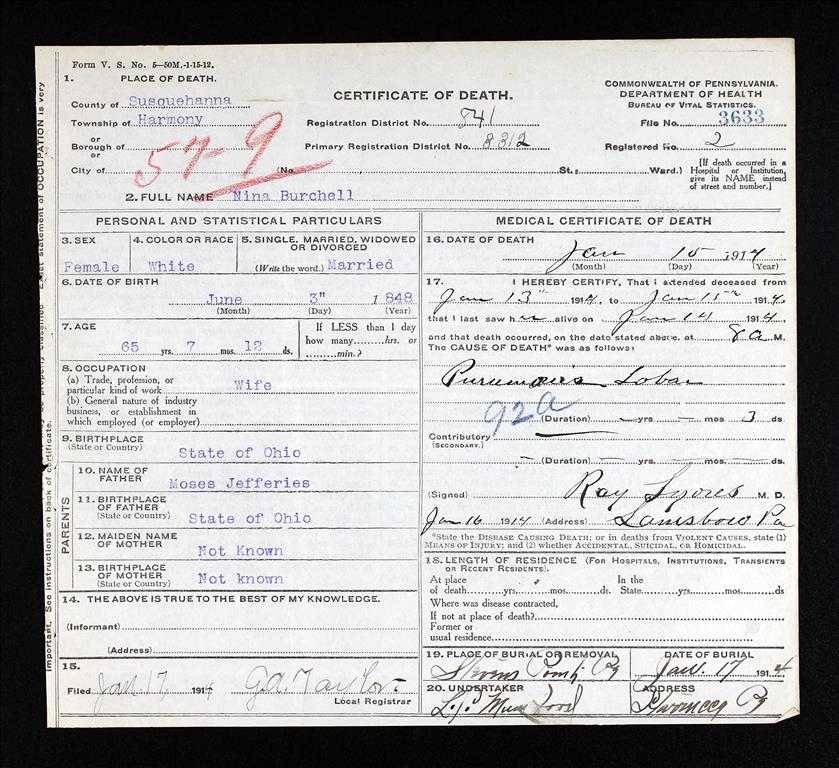 Form V. S. No. 5—50M.-1-15-12.
1. PLACE OF DEATH.
County of Susquehanna
Township of Harmony
or
Borough of
or
City of
(No.
St.;
Ward.)
57-9
CERTIFICATE OF DEATH.
Registration District No. 841
Primary Registration District No. 8312
COMMONWEALTH OF PENNSYLVANIA.
DEPARTMENT OF HEALTH
BUREAU OF VITAL STATISTICS.
File No. 3633
Registered No. 2
[If death occurred in a
Hospital or Institution,
give its NAME instead
of street and number.]
2. FULL NAME Nina Burchell
PERSONAL AND STATISTICAL PARTICULARS
3. SEX
Female
4. COLOR OR RACE
White
5. SINGLE, MARRIED, WIDOWED
OR DIVORCED
(Write the word.) Married
6. DATE OF BIRTH
June 3" 1848
(Month) (Day) (Year)
7. AGE
65 yrs. 7 mos. 12 ds.
If LESS than I day
how many hrs. or
min.?
8. OCCUPATION
(a) Trade, profession, or
particular kind of work Wife
(b) General nature of industry
business, or establishment in
which employed (or employer)
9. BIRTHPLACE
(State or Country)
State of Ohio
PARENTS
10. NAME OF
FATHER
Moses Jefferies
11. BIRTHPLACE
OF FATHER
(State or Country)
State of Ohio
12. MAIDEN NAME
OF MOTHER
Not Known
13. BIRTHPLACE
OF MOTHER
(State or Country)
Not known
14. THE ABOVE IS TRUE TO THE BEST OF MY KNOWLEDGE.
(Informant)
(Address)
15.
Filed Jan. 17, 1914 G.A. Taylor.
Local Registrar
MEDICAL CERTIFICATE OF DEATH
16. DATE OF DEATH
Jan 15 1914
(Month) (Day) (Year)
17. I HEREBY CERTIFY, That I attended deceased from
Jan 13th 1914, to Jan 15th 1914,
that I last saw her alive on Jan 14 1914
and that death occurred, on the date stated above, at 8a M.
The CAUSE OF DEATH* was as follows:
Pneumonia Lobar
92a
(Duration) yrs. mos 3 ds
Contributory
(SECONDARY.)
(Duration) yrs. mos ds
(Signed) Ray Lyons M. D.
Jan 16 1914 (Address) Lanesboro Pa
*State the DISEASE CAUSING DEATH; or in deaths from VIOLENT CAUSES, state (1)
MEANS OF INJURY; and (2) whether ACCIDENTAL, SUICIDAL, OR HOMICIDAL.
18. LENGTH OF RESIDENCE (FOR HOSPITALS, INSTITUTIONS, TRANSIENTS
OR RECENT RESIDENTS).
At place
of death yrs. mos. ds.
In the
State yrs. mos. ds
Where was disease contracted,
If not at place of death?
Former or
usual residence
19. PLACE OF BURIAL OR REMOVAL
Stevens Point Pa
DATE OF BURIAL
Jan. 17 1914
20. UNDERTAKER
ADDRESS
Pa
Important. See instructions on back of certificate.
Exact statement of OCCUPATION is very